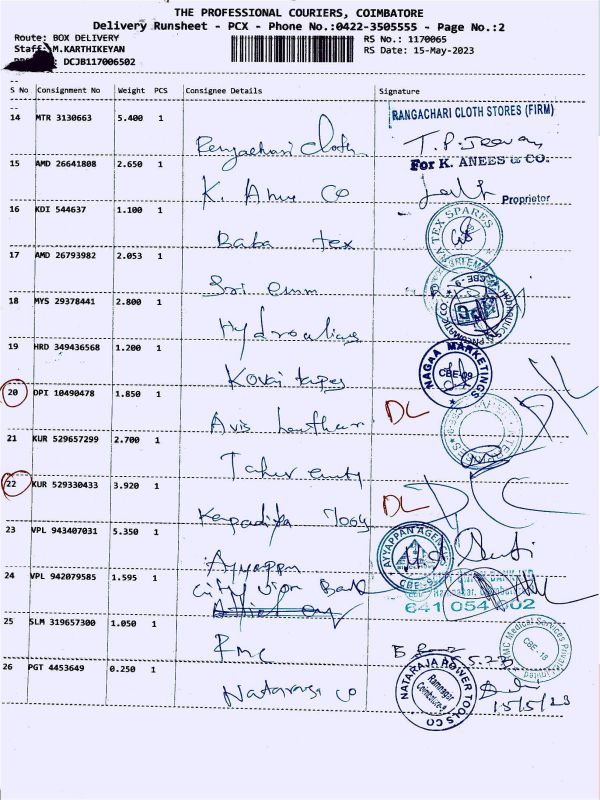 THE PROFESSIONAL COURIERS, COIMBATORE
Delivery Runsheet - PCX - Phone No.:0422-3505555 - Page No.:2
Route: BOX DELIVERY
RS No.: 1170065
Staff: M.KARTHIKEYAN
RS Date: 15-May-2023
: DCJB117006502
S No Consignment No Weight PCS Consignee Details Signature
14 MTR 3130663 5.400 1
RANGACHARI CLOTH STORES (FIRM)
Rengachari Cloth
For K. ANEES & CO.
15 AMD 26641808 2.650 1
K. Anee Co
Proprietor
16 KDI 544637 1.100 1
TEX SPARES
Baba tex
17 AMD 26793982 2.053 1
Sri emm
18 MYS 29378441 2.800 1
Hydroulics
19 HRD 349436568 1.200 1
NAGAA MARKETINGS
CBE-09
Kovai tapes
20 DPI 10490478 1.850 1
DL
Avis
21 KUR 529657299 2.700 1
22 KUR 529330433 3.920 1
DL
23 VPL 943407031 5.350 1
AYYAPPAN AGENCIES
Ayyappa
24 VPL 942079585 1.595 1
City Union Bank
641 054
25 SLM 319657300 1.050 1
RMC Medical Services Private Limited
CBE-18
RMC
26 PGT 4453649 0.250 1
NATARAJA POWER TOOLS CO
Ramnagar
Coimbatore-9
Nataraj Co
15/5/23